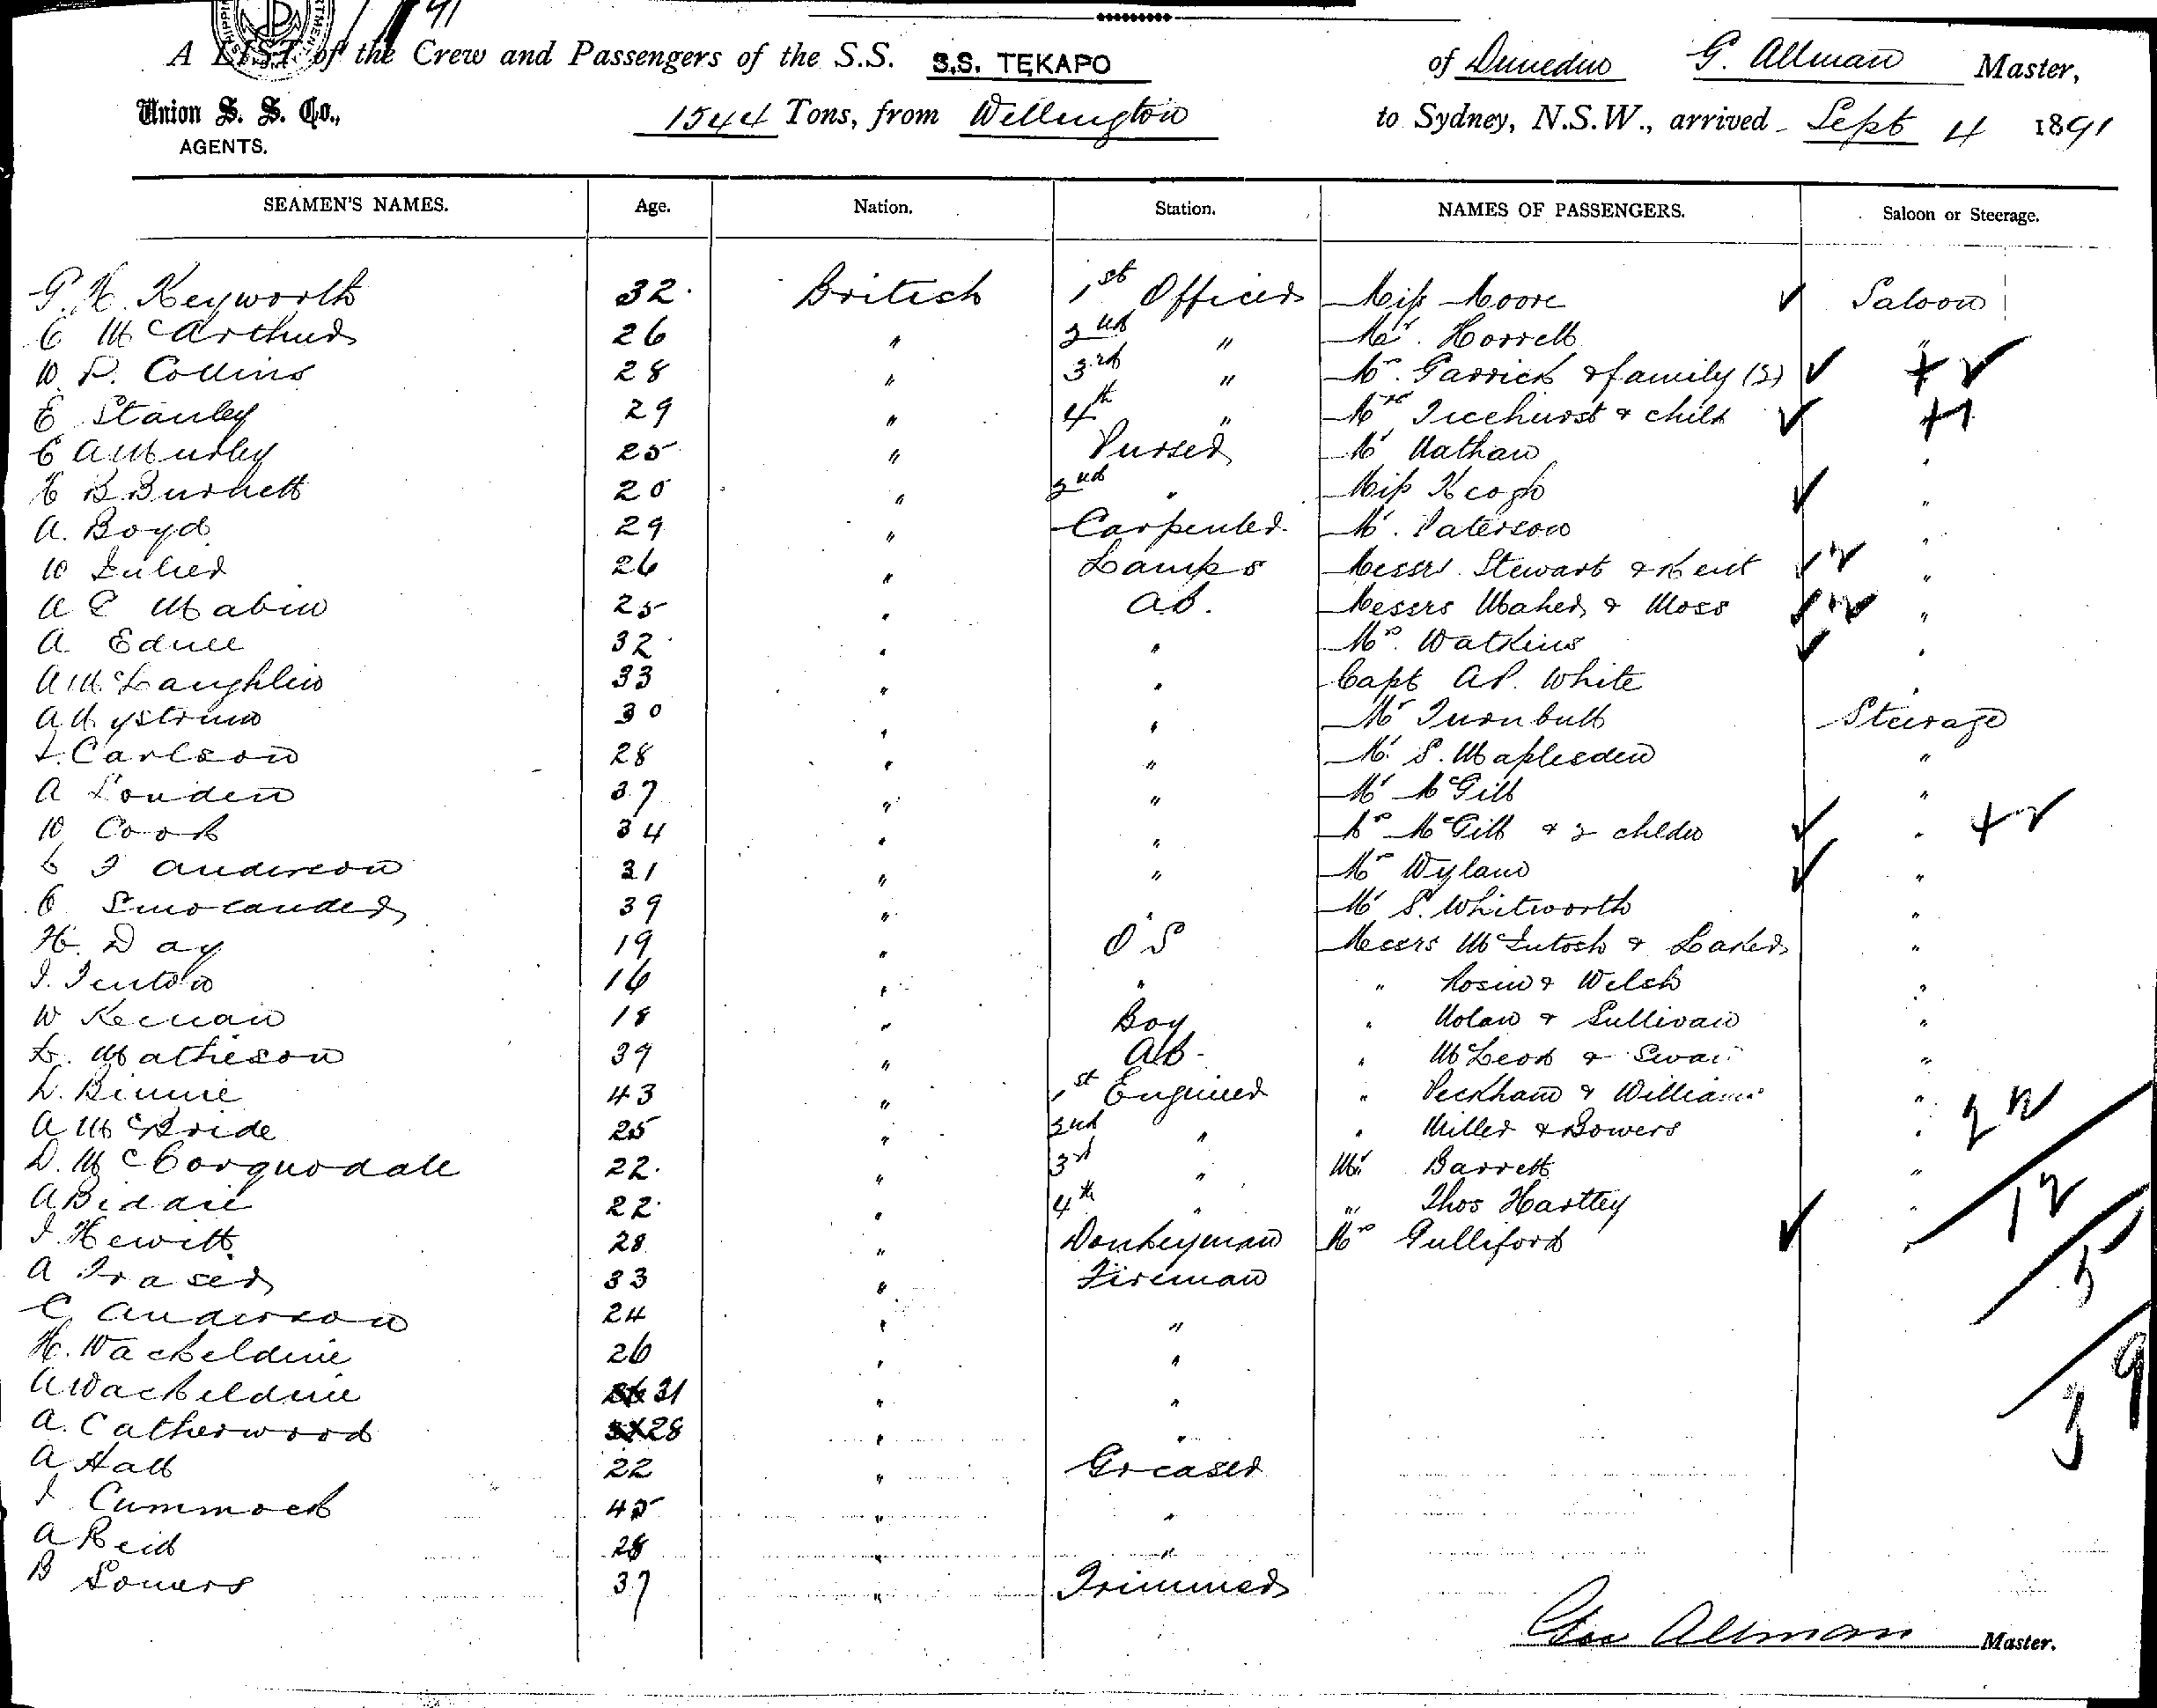 91
A LIST of the Crew and Passengers of the S.S. S.S. TEKAPO of Dunedin G. Allman Master,
Union S. S. Co., AGENTS. 1544 Tons, from Wellington to Sydney, N.S.W., arrived Sept 4 1891
SEAMEN'S NAMES. Age. Nation. Station. NAMES OF PASSENGERS. Saloon or Steerage.
G. H. Keyworth 32 British 1st Officer Miss Moore Saloon
C McArthur 26 " 2nd " Mr. Horrell "
W P. Collins 28 " 3rd " Mrs. Garrick & family (3) + 2
E Stanley 29 " 4th " Mrs Ticehurst & child + 1
C A 25 " Purser Mr Nathan "
H B Burnett 20 " 2nd " Miss Keogh "
A. Boyd 29 " Carpenter Mr. Paterson "
W 26 " Lamps Messrs. Stewart & Kent 2 "
A E Mabin 25 " AB. Messrs Maher & Moss 2 "
A. 32 " " Mrs. Watkins "
A McLaughlin 33 " " Capt A.P. White "
A Nystrum 30 " " Mr Turnbull Steerage
Carlson 28 " " Mr. S. Maplesden "
A Louden 37 " " Mr McGill "
W Cook 34 " " Mrs McGill & 2 childn " + 2
C J Anderson 31 " " Mrs Wyland "
C. Smolander 39 " " Mr S. Whitworth "
H. Day 19 " O S Messrs McIntosh & Laker "
J. Fenton 16 " " " Rosin & Welch "
W Keenan 18 " Boy " Nolan & Sullivan "
Matheson 39 " AB. " McLeod & Swain "
D. Binnie 43 " 1st Engineer " Peckham & Williams "
A McBride 25 " 2nd " " Miller & Bowers "
D. McCorquodale 22 " 3rd " Mr. Barrett "
A 22 " 4th " " Thos Hartley "
J. Hewitt 28 " Donkeyman Mrs Gulliford "
A Fraser 33 " Fireman
C Anderson 24 " "
H. Wackeldine 26 " "
A Wackeldine 31 " "
A. Catherwood 28 " "
A Hall 22 " Greaser
J Cummock 45 " "
A Reid 28 " "
B Somers 37 " Trimmer
12
5
39
Geo Allman Master.